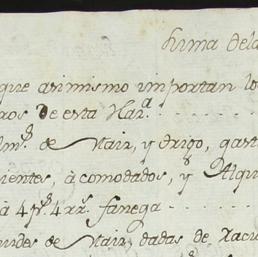 Suma dela
que asimismo importan lo
ros de esta Haz.ᵃ
lm.ˢ de Maiz, y trigo, gast
ientes, àcomodados, y Alqui
à 4 p.ˢ 4 rr.ˢ fanega
uides de Maiz, dadas de Raci